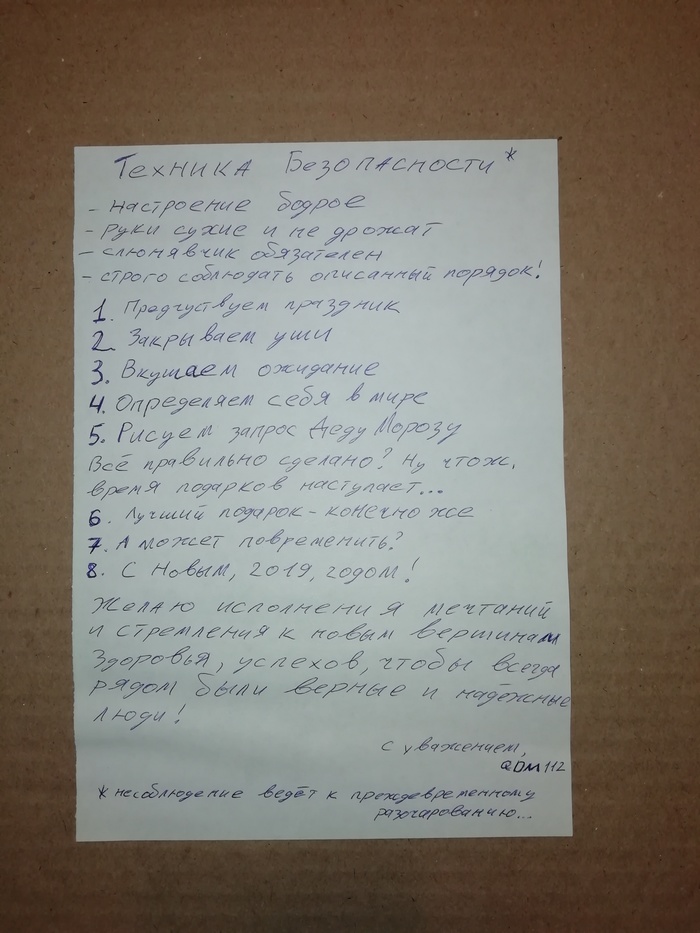 Техника Безопасности*
- настроение бодрое
- руки сухие и не дрожат
- слюнявчик обязателен
- строго соблюдать описанный порядок!
1. Предчуствуем праздник
2. Закрываем уши
3. Вкушаем ожидание
4. Определяем себя в мире
5. Рисуем запрос Деду Морозу
Всё правильно сделано? Ну чтож,
время подарков наступает...
6. Лучший подарок - конечно же
7. А может повременить?
8. С Новым, 2019, годом!
Желаю исполнения мечтаний
и стремления к новым вершинам
Здоровья, успехов, чтобы всегда
рядом были верные и надёжные
люди!
с уважением,
QDM112
* несоблюдение ведёт к преждевременному
разочарованию...